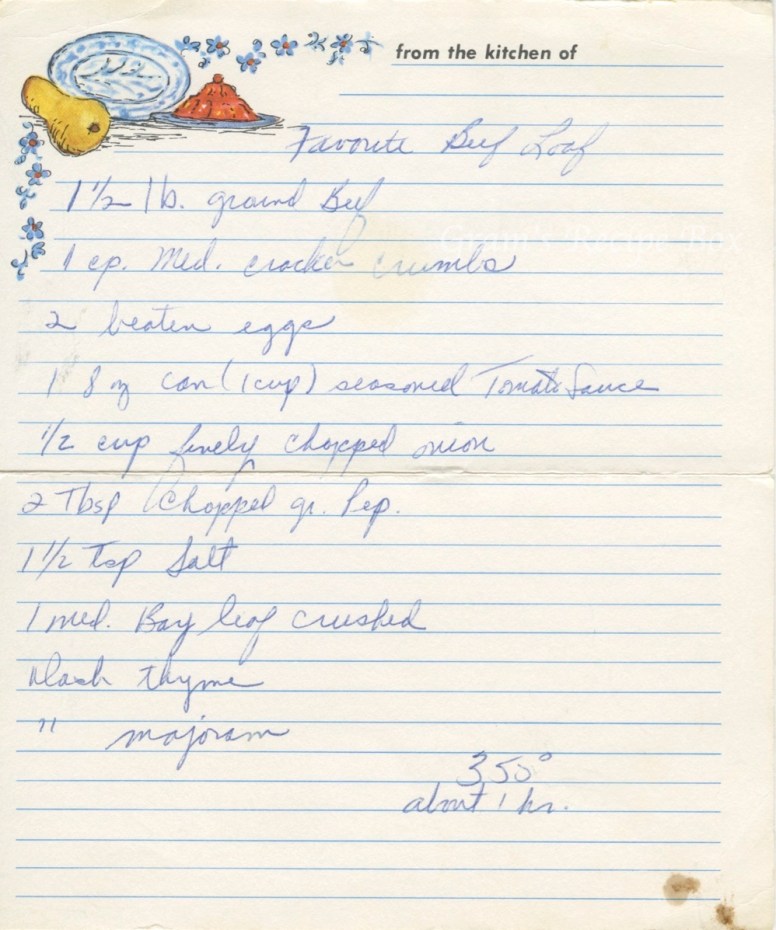 from the kitchen of
Favorite Beef Loaf
1 1/2 lb. ground Beef
1 cp. Med. cracker crumbs
2 beaten eggs
1 8 oz can (1 cup) seasoned Tomato Sauce
1/2 cup finely chopped onion
2 Tbsp Chopped gr. Pep.
1 1/2 Tsp Salt
1 med. Bay leaf crushed
dash thyme
" majoram
350°
about 1 hr.